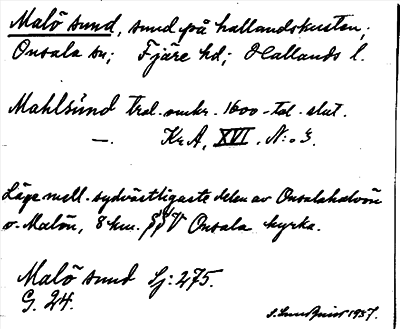 Malö sund, sund på hallandskusten;
Onsala sn; Fjäre hd; Hallands l.
Mahlsund trol. omkr. 1600-tal. slut.
— KrA, XVI, N:o 3.
Läge mell. sydvästligaste delen av Onsalahalvön
o. Malön, 8 km. SSV Onsala kyrka.
Malö sund Sj: 275.
G. 24.
S. Lundquist 1937.